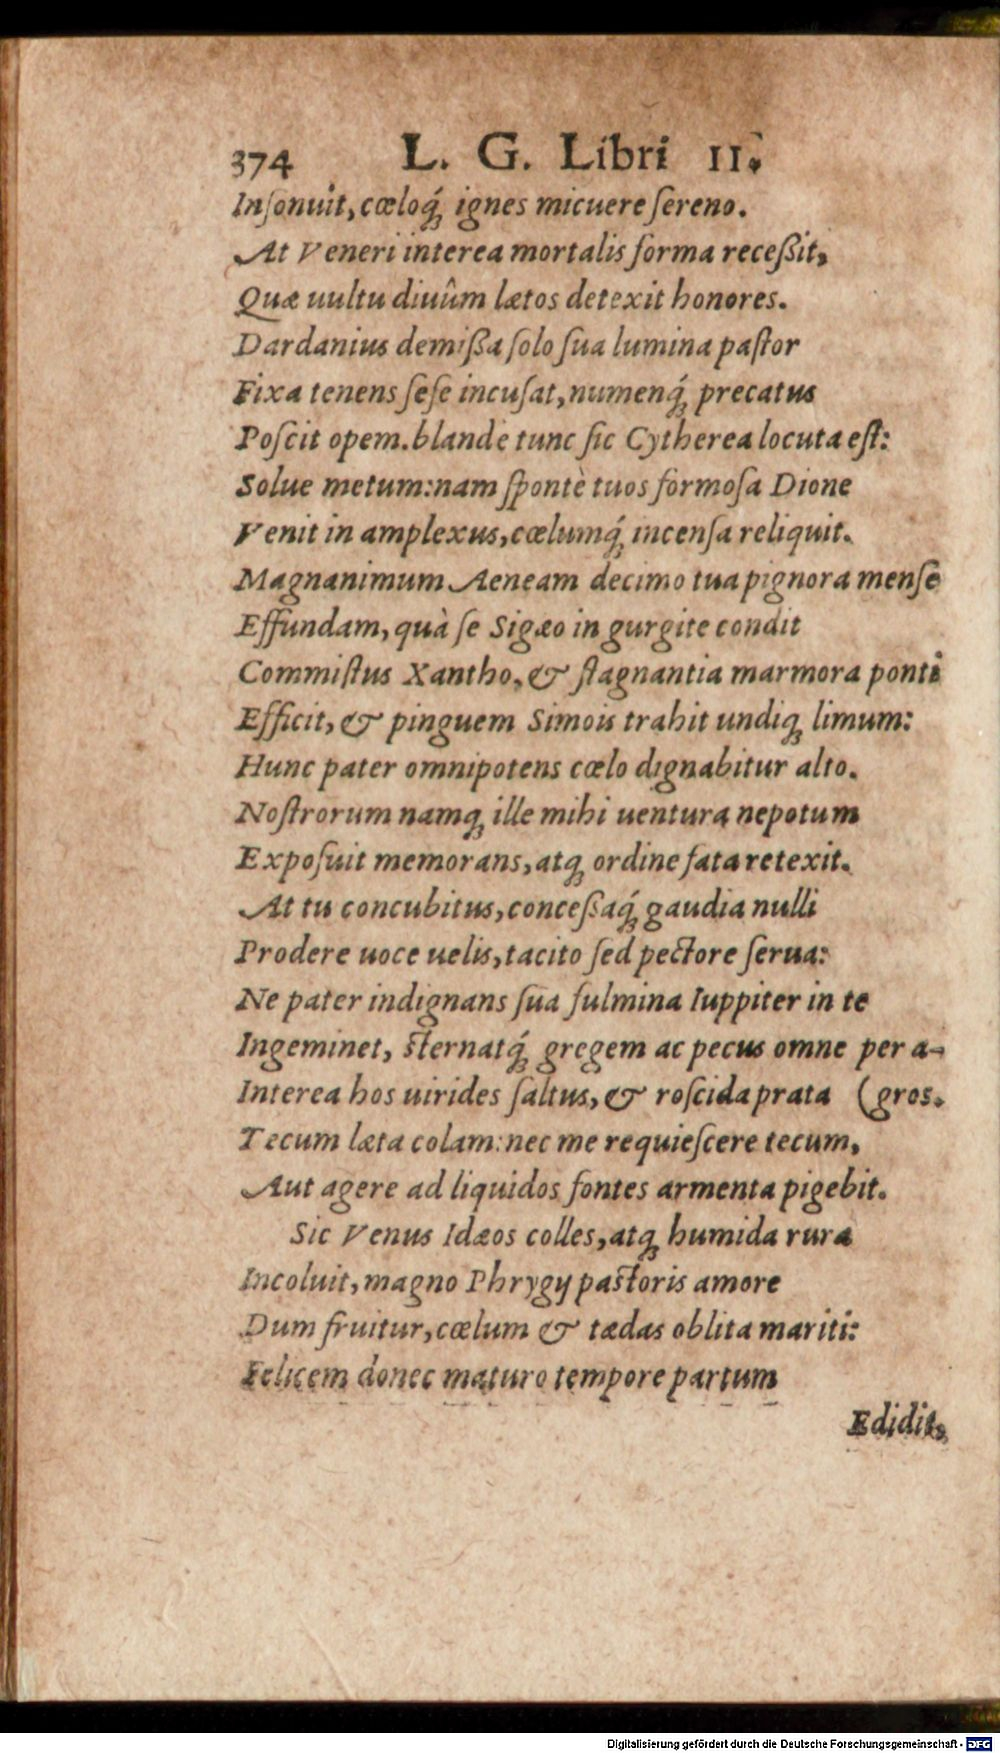 374 L. G. Libri II.
Inſonuit, cœloq́; ignes micuere ſereno.
At Veneri interea mortalis forma receßit,
Quæ uultu diuûm lætos detexit honores.
Dardanius demißa ſolo ſua lumina paſtor
Fixa tenens ſeſe incuſat, numenq́; precatus
Poſcit opem. blandè tunc ſic Cytherea locuta eſt:
Solue metum: nam ſpontè tuos formoſa Dione
Venit in amplexus, cœlumq́; incenſa reliquit.
Magnanimum Aeneam decimo tua pignora menſe
Effundam, quà ſe Sigæo in gurgite condit
Commiſtus Xantho, & ſtagnantia marmora ponti
Efficit, & pinguem Simois trahit undiq; limum:
Hunc pater omnipotens cœlo dignabitur alto.
Noſtrorum namq; ille mihi uentura nepotum
Expoſuit memorans, atq; ordine fata retexit.
At tu concubitus, conceßaq́; gaudia nulli
Prodere uoce uelis, tacito ſed pectore ſerua:
Ne pater indignans ſua fulmina Iuppiter in te
Ingeminet, ſternatq́; gregem ac pecus omne per a-
Interea hos uirides ſaltus, & roſcida prata (gros.
Tecum læta colam: nec me requieſcere tecum,
Aut agere ad liquidos fontes armenta pigebit.
Sic Venus Idæos colles, atq; humida rura
Incoluit, magno Phrygij paſtoris amore
Dum fruitur, cœlum & tædas oblita mariti:
Felicem donec maturo tempore partum
Edidit,
Digitalisierung gefördert durch die Deutsche Forschungsgemeinschaft - DFG